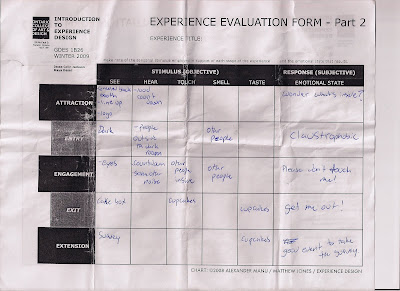 ONTARIO
COLLEGE
OF ART &
DESIGN
INTRODUCTION
TO
EXPERIENCE
DESIGN
GDES 1B26
WINTER 2009
EXPERIENCE EVALUATION FORM - Part 2
EXPERIENCE TITLE:
STIMULUS (OBJECTIVE)
RESPONSE (SUBJECTIVE)
SEE
HEAR
TOUCH
SMELL
TASTE
EMOTIONAL STATE
ATTRACTION
booth
line up
- logo
wonder what's inside?
ENTRY
Dark
- people
outside
room
other
people
Claustrophobic
ENGAGEMENT
- Eyes
countdown
noise
other
people
inside
other
people
Please don't touch
me!
EXIT
cupcakes
cupcakes
get me out!
EXTENSION
Sunday
cupcakes
good event to take
CHART: ©2008 ALEXANDER MANU / MATTHEW JONES / EXPERIENCE DESIGN